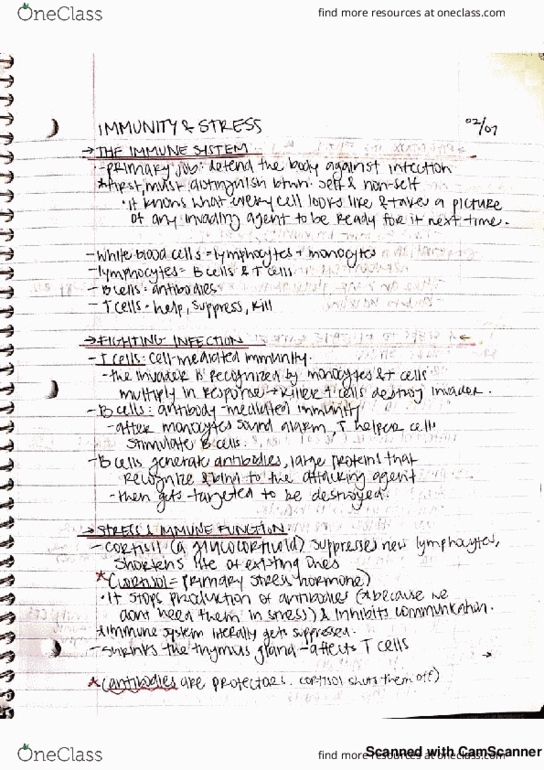 OneClass
find more resources at oneclass.com
IMMUNITY & STRESS
02/07
→ THE IMMUNE SYSTEM
- primary job: defend the body against infection
* first, must distinguish btwn: self & non-self
• it knows what every cell looks like & takes a picture
of any invading agent to be ready for it next time.
- white blood cells = lymphocytes + monocytes
- lymphocytes = B cells & T cells
- B cells = antibodies
- T cells = help, suppress, kill
→ FIGHTING INFECTION
- T cells: cell-mediated immunity.
- the invader is recognized by monocytes & T cells
multiply in response → killer T cells destroy invader.
- B cells: antibody-mediated immunity
- after monocytes sound alarm, T helper cells
stimulate B cells.
- B cells generate antibodies, large proteins that
recognize & bind to the attacking agent
- then gets targeted to be destroyed.
→ STRESS & IMMUNE FUNCTION:
- cortisol (a glucocorticoid) suppresses new lymphocytes,
shortens life of existing ones
* (cortisol = primary stress hormone)
• It stops production of antibodies (* because we
dont need them in stress) & inhibits communication.
* immune system literally gets suppressed.
- shrinks the thymus gland - affects T cells
→
* (antibodies are protectors. cortisol shuts them off)
OneClass
find more resources at oneclass.com
Scanned with CamScanner